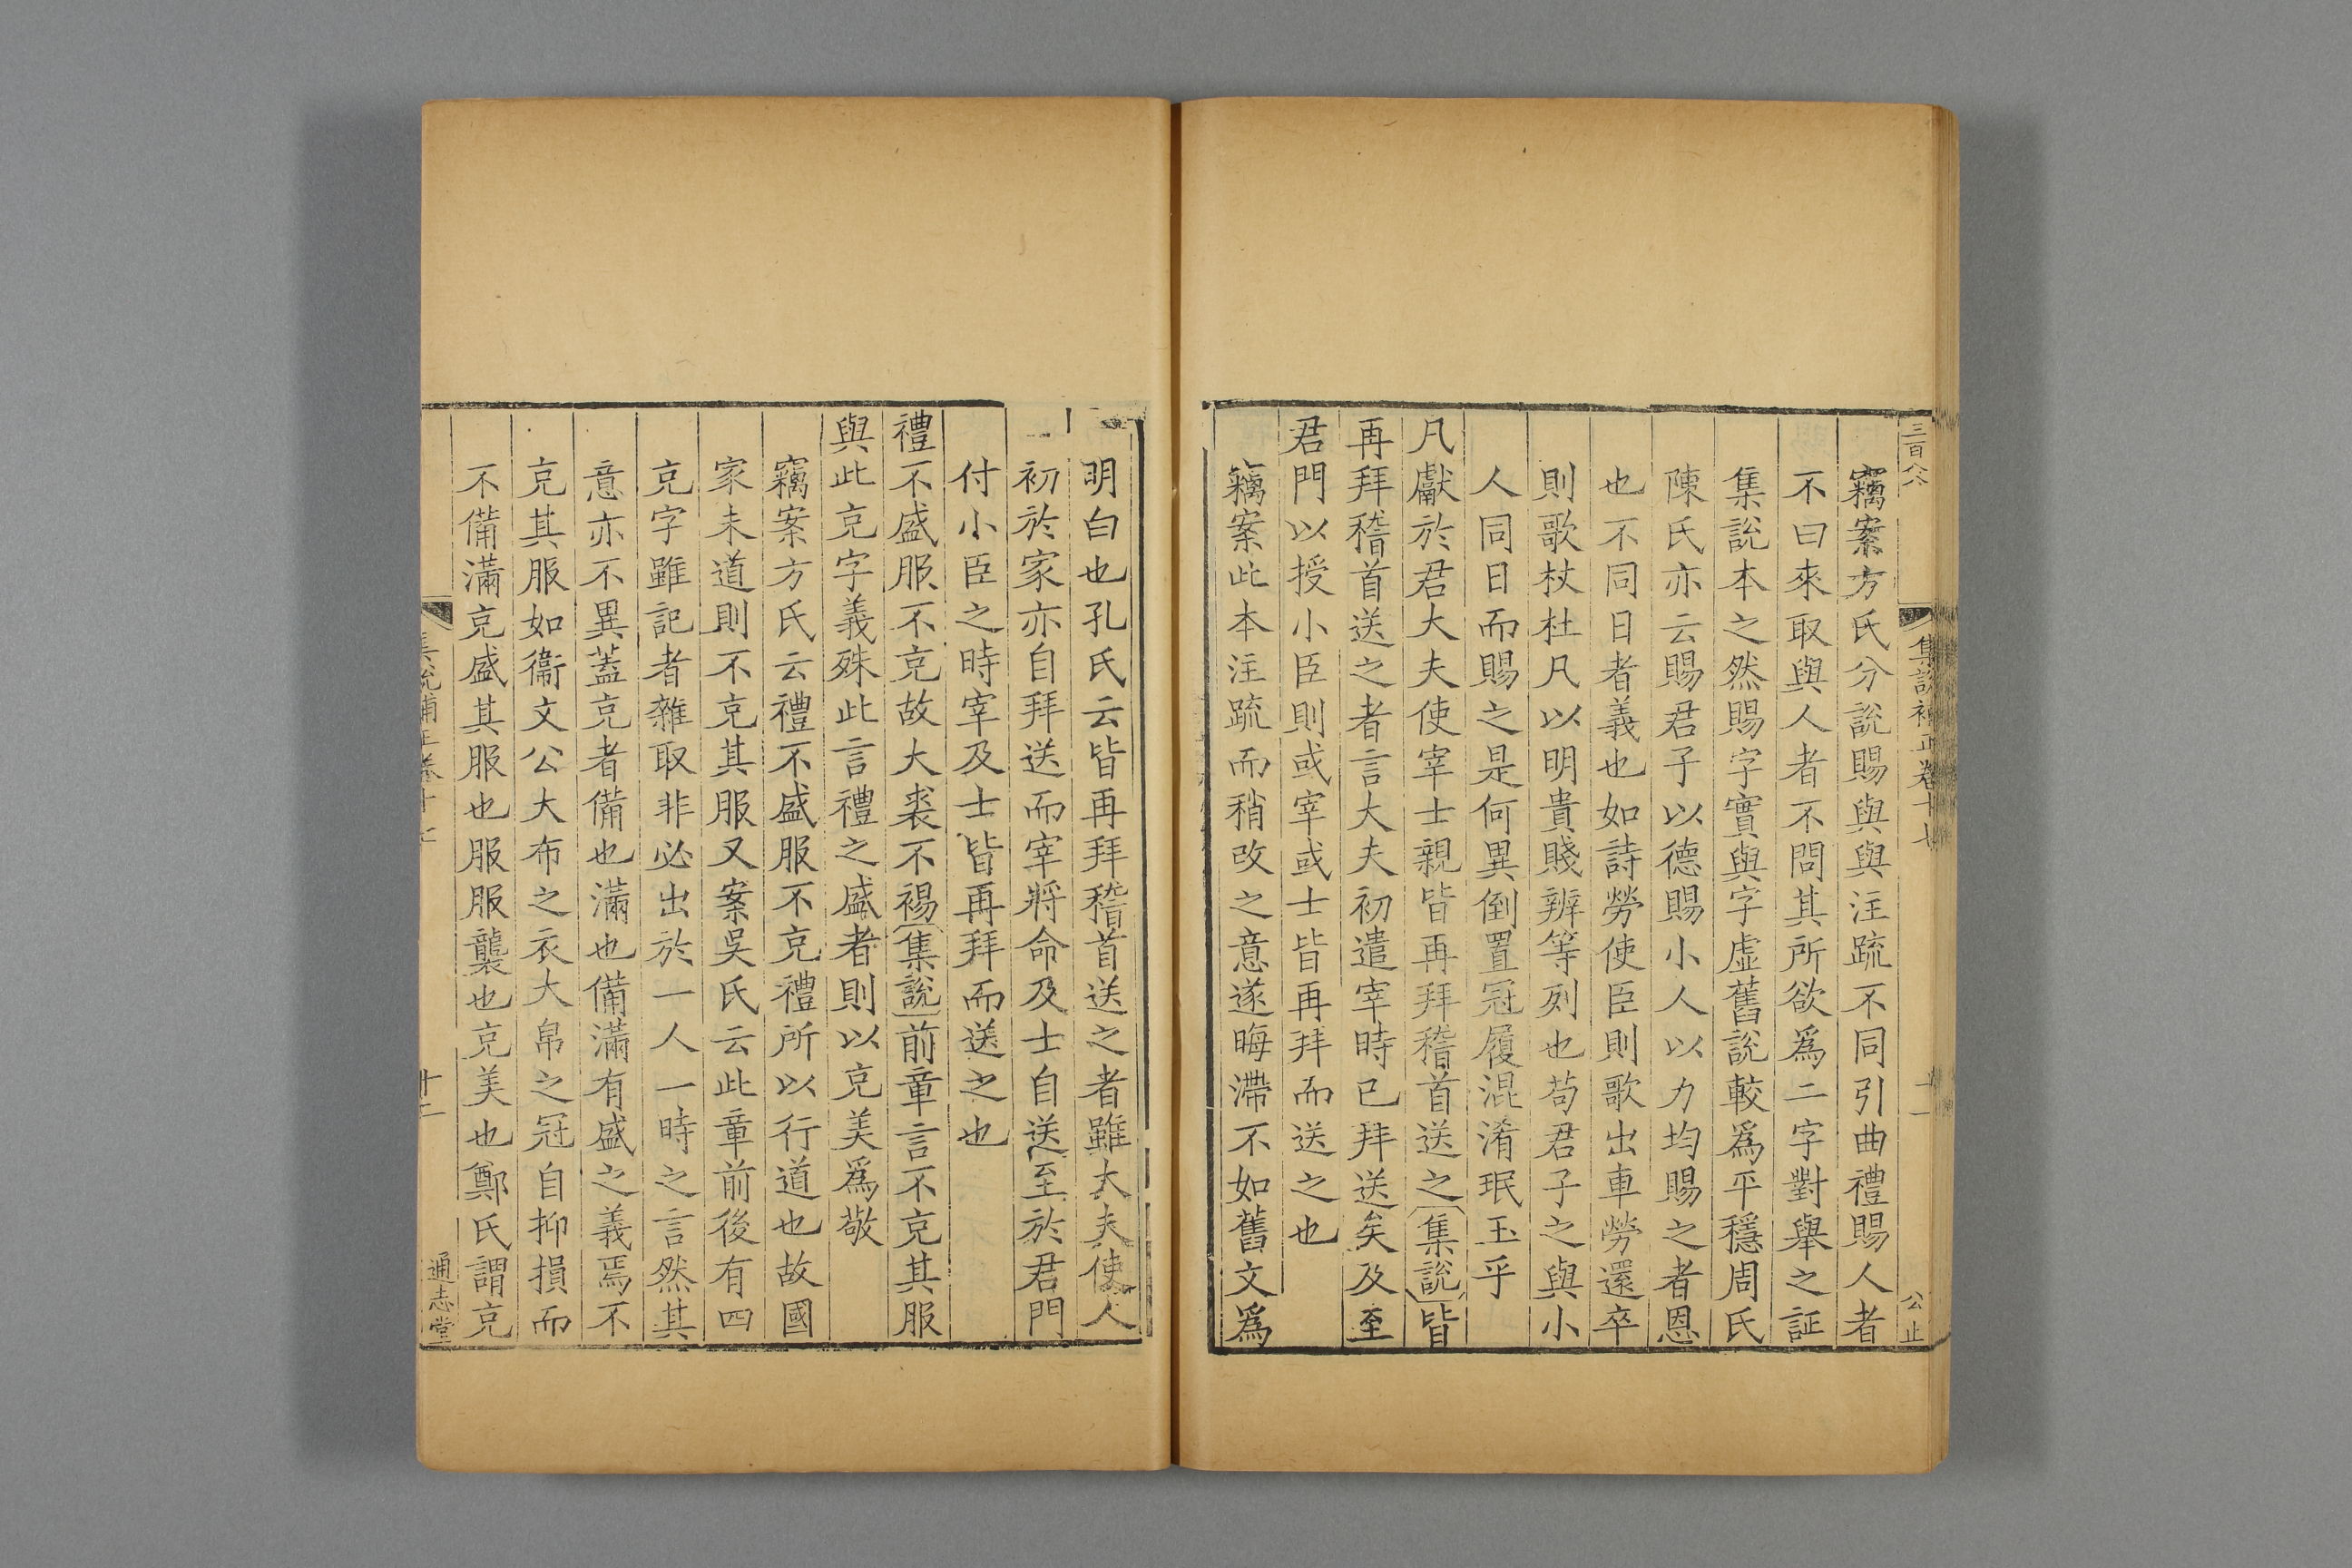 三百八八
集說補正卷十七
十一
公止
竊案方氏分說賜與與注疏不同引曲禮賜人者
不曰來取與人者不問其所欲爲二字對舉之証
集說本之然賜字實與字虛舊說較爲平穩周氏
陳氏亦云賜君子以德賜小人以力均賜之者恩
也不同日者義也如詩勞使臣則歌出車勞還卒
則歌杕杜凡以明貴賤辨等列也苟君子之與小
人同日而賜之是何異倒置冠履混淆珉玉乎
凡獻於君大夫使宰士親皆再拜稽首送之集說皆
再拜稽首送之者言大夫初遣宰時已拜送矣及至
君門以授小臣則或宰或士皆再拜而送之也
竊案此本注疏而稍改之意遂晦滯不如舊文爲
明白也孔氏云皆再拜稽首送之者雖大夫使人
初於家亦自拜送而宰將命及士自送至於君門
付小臣之時宰及士皆再拜而送之也
禮不盛服不充故大裘不裼集說前章言不充其服
與此充字義殊此言禮之盛者則以充美爲敬
竊案方氏云禮不盛服不充禮所以行道也故國
家未道則不充其服又案吳氏云此章前後有四
充字雖記者雜取非必出於一人一時之言然其
意亦不異蓋充者備也滿也備滿有盛之義焉不
充其服如衞文公大布之衣大帛之冠自抑損而
不備滿充盛其服也服服襲也充美也鄭氏謂充
集說補正卷十七
十二
通志堂